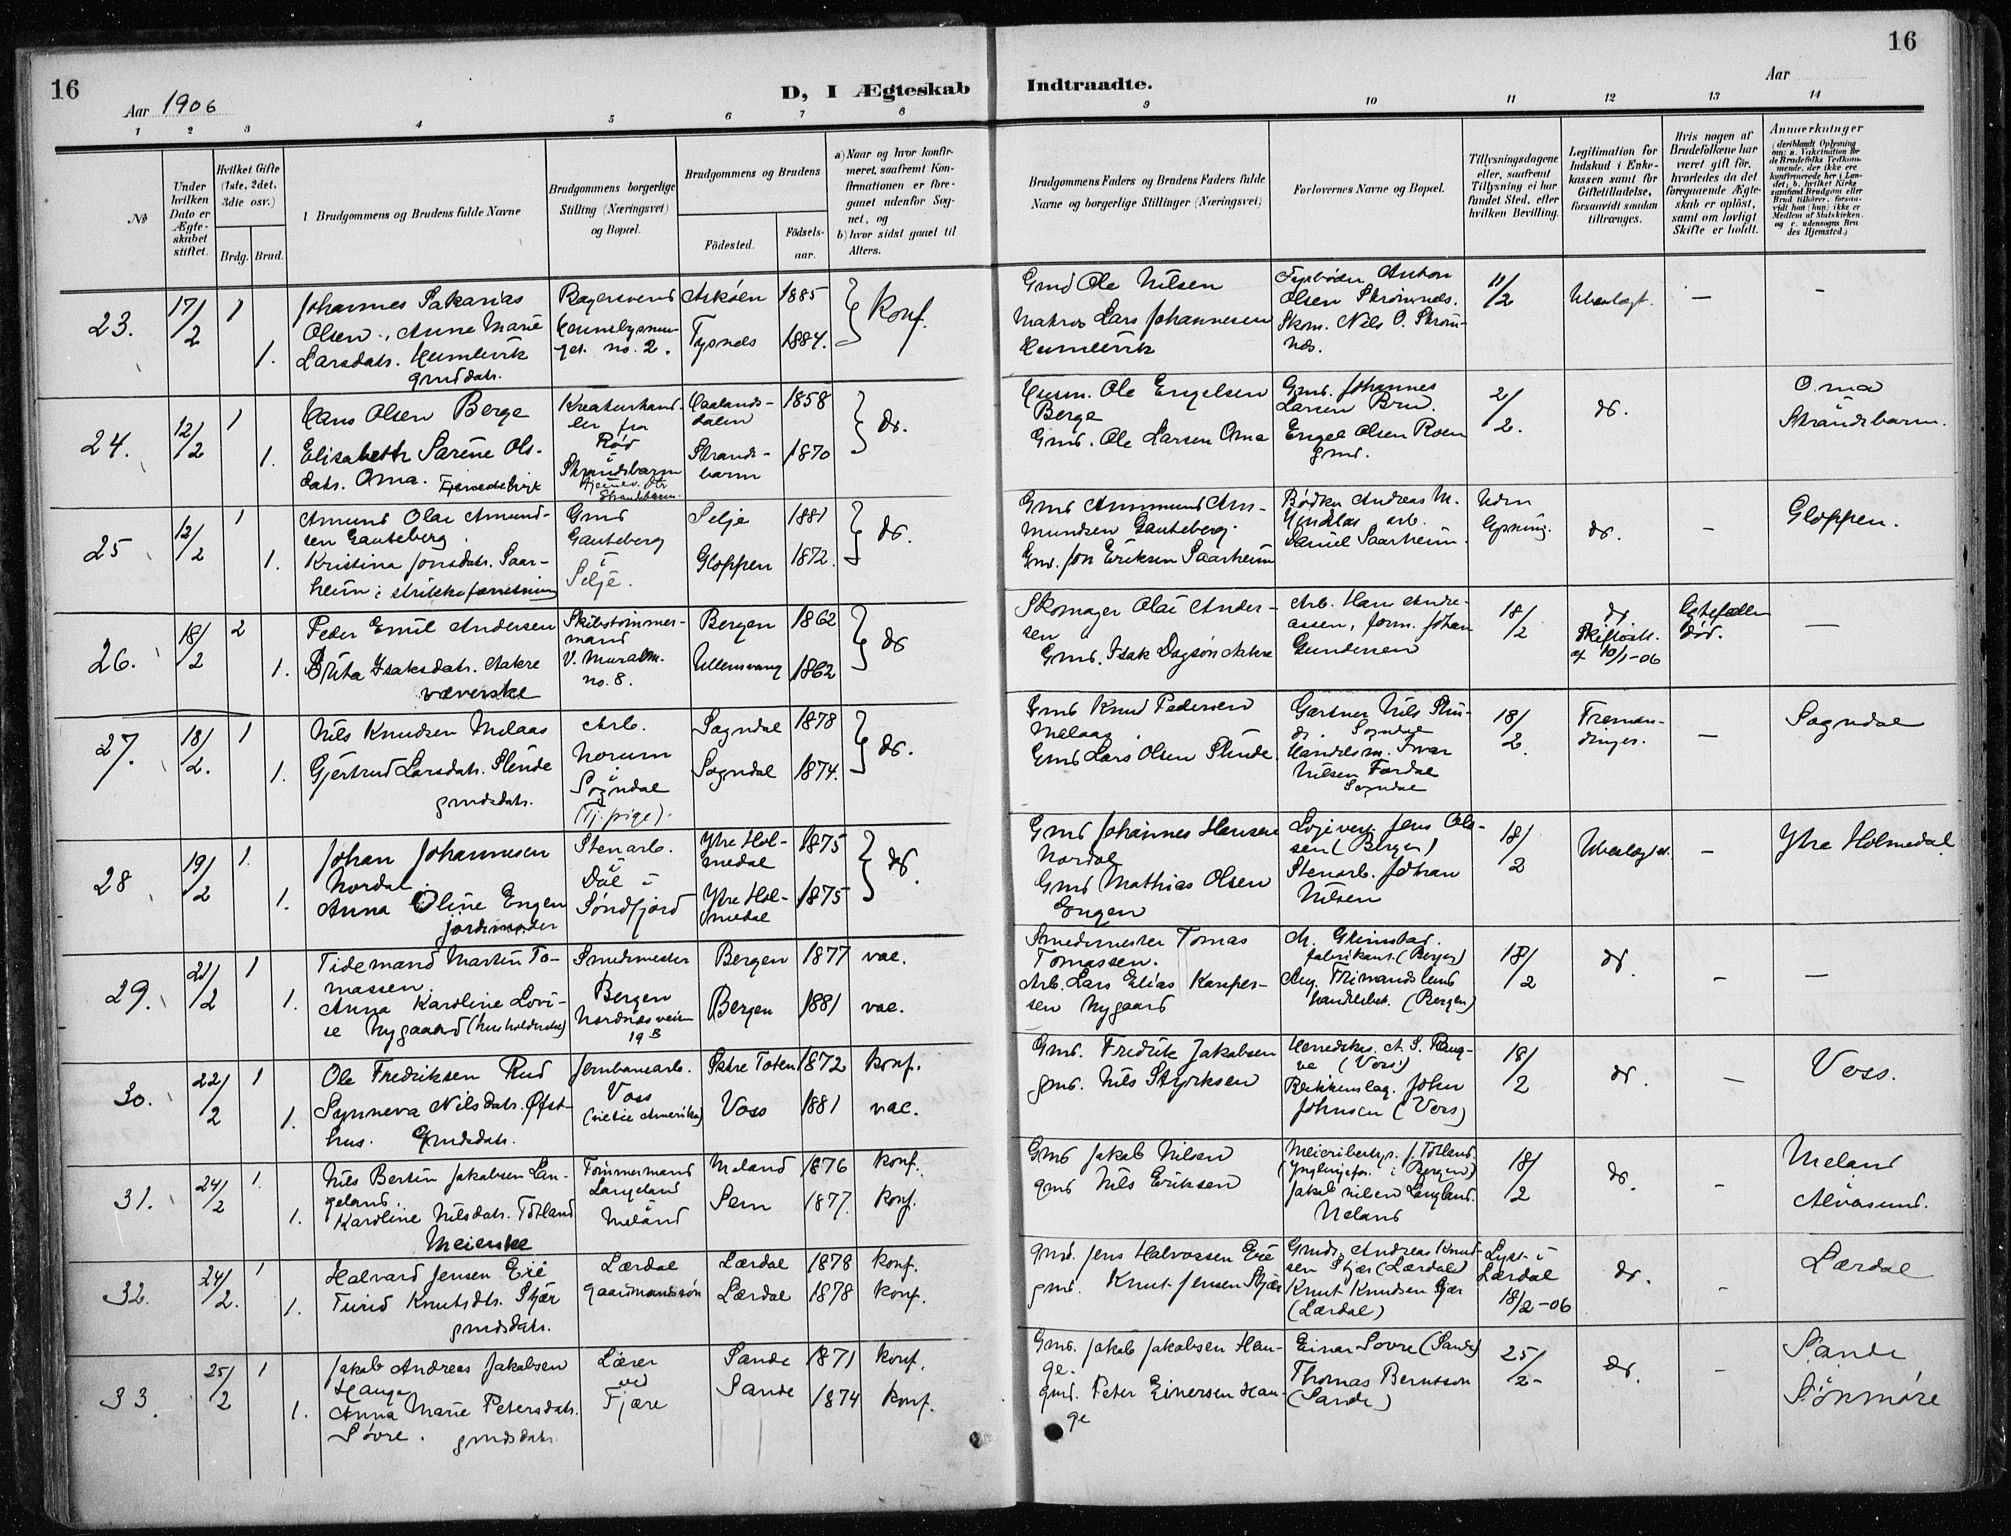 16
Aar 1906
D, I Ægteskab
Indtraadte.
Aar
16
1 2 3 4 5 6 7 8 9 10 11 12 13 14
No
Under hvilken Dato er Ægteskabet stiftet.
Hvilket Gifte (1ste, 2det, 3die osv.)
Brdg. Brud.
Brudgommens og Brudens fulde Navne
Brudgommens borgerlige Stilling (Næringsvei) og Bopæl.
Brudgommens og Brudens
Födested.
Födselsaar.
a) Naar og hvor konfirmeret, saafremt Konfirmationen er foregaaet udenfor Sognet, og
b) hvor sidst gaaet til Alters.
Brudgommens Faders og Brudens Faders fulde Navne og borgerlige Stillinger (Næringsvei)
Forlovernes Navne og Bopæl.
Tillysningsdagene eller, saafremt Tillysning ei har fundet Sted, efter hvilken Bevilling.
Legitimation for Indskud i Enkekassen samt for Giftetilladelse, forsaavidt saadan tiltrænges.
Hvis nogen af Brudefolkene har været gift før, hvorledes da det foregaaende Ægteskab er opløst, samt om lovligt Skifte er holdt.
Anmerkninger
23. 17/2 1
1.
Johannes Sakarias
Olsen., Anne Marie
Larsdatr. Humlevik
gmddatr.
no. 2.
Askøen 1885
Tysnes 1884.
Konf.
Gmd Ole Nilsen
Matros Lars Johannesen
Humlevik
Fyrbøder Anton
Olsen Strømnes.
Skom. Nils O. Strømnes.
11/2
Ubeslægt.
–
–
24. 12/2 1
1.
Hans Olsen Berge
Elisabeth Sarine Olsdatr. Oma.
Kreaturhandler fra
Rød
i
Strandebarm
dalen 1858
Strandebarm 1870
do.
Husm. Ole Engelsen
Berge
Gmd. Ole Larsen Oma
Gmd. Johannes
Larsen Bru.
Engel Olsen Roen
gmd.
2/2.
do.
Oma
i
Strandebarm.
25 12/2 1
1.
Amund Olai Amundsen Gauteberg.
Kristina Jonsdatr. Saarheim; strikkeforretning
Gmd
Gauteberg
i
Selje.
Selje 1881
Gloppen 1872.
do.
Gmd Ammund Ammundsen Gauteberg.
Gmd. Jon Eriksen Saarheim
Bødker Andreas M.
arb.
Daniel Saarheim.
Uden
lysning.
do.
–
Gloppen.
26. 18/2 2
1.
Peder Emil Andersen
Brita Isaksdatr. Aakre
væverske
Skibstømmermand
V. Muralm.
no. 8.
Bergen 1862
Ullensvang 1862
do
Skomager Olai Andersen
Gmd. Isak Dagsøn Aakre
Arb. Hans Andreassen, form. Johan
Gundersen
18/2
do
Skifteatt.
af 10/1-06
Egtefællen
død.
–
27. 18/2. 1
1.
Nils Knudsen Melaas
Gjertrud Larsdatr. Slinde
gmdsdatr.
Arb.
Norum
i
Sogndal
(Tj. pige).
Sogndal 1878
Sogndal 1874.
do.
Gmd Knud Pedersen
Melaas.
Gmd Lars Olsen Slinde
Gartner Nils Slinde. Sogndal
Handelsm. Ivar
Nilsen Fardal
Sogndal
18/2.
Fremmendinger.
–
Sogndal
28 19/2 1.
1.
Johan Johannesen
Nordal.
Anna Oline Engen
jordmoder
Stenarb.
i
Dale i
Søndfjord
Ytre Holmedal 1875
Ytre Holmedal 1875
do.
Gmd Johannes Hansen
Nordal
Gmd Mathias Olsen
Engen
Jens Olsen (Bergen)
Stenarb. Johan
Nilsen
18/2
Ubeslægtet.
–
Ytre Holmedal.
29. 21/2 1
1.
Tidemand Martin Tomassen.
Anna Karoline Lovise Nygaard (husholderske)
Smedmester
Bergen
Nordnesveien
19 B
Bergen 1877 vac.
Bergen 1881 vac.
Smedemester Tomas
Tomassen.
Arb. Lars Elias Kaspersen Nygaard
A. Grimstad.
fabrikant. (Bergen)
Aug. Thimandslund
handelsbet. (Bergen)
18/2
do.
–
–
30. 22/2 1
1.
Ole Fredriksen Rud
Synneva Nilsdatr. Østhus. Gmdsdatr.
Jernbanearb.
Voss
Østre Toten 1872 konf.
Voss 1881 vac.
Gmd. Fredrik Jakobsen
gmd. Nils Styrksen
(Voss)
John
Johnsen (Voss)
18/2
do.
–
Voss.
31. 24/2 1.
1.
Nils Bertin Jakobsen Langeland.
Karoline Nilsdatr. Totland
Meierske
Tømmermand
Langeland
i
Meland
Meland 1876 konf.
Sem 1877. konf.
Gmd Jakob Nilsen
gmd Nils Eriksen
Meieribestyr. J. Totland.
(Ynglingefor. i Bergen)
Jakob Nilsen Langeland.
Meland
18/2
do.
–
Meland
i
Alvøsund.
32. 24/2. 1
1.
Halvard Jensen Eri
Turid Knutsdtr. Skjær
gmdsdatr.
Lærdal
gaardmandssøn
Lærdal 1878 konf.
Lærdal 1878 konf.
gmd. Jens Halvorsen Eri
gmd. Knut Jensen Skjær
Gmd. Andreas Knudsen Skjær (Lærdal)
Knut Knudsen Skjær
(Lærdal)
Lyst i
Lærdal
18/2-06
do.
–
Lærdal
33. 25/2 1
1.
Jakob Andreas Jakobsen
Hauge
Anna Marie Petersdatr.
Søvre. gmdsdatr.
Lærer
ved
Fjære
Sande 1871 konf.
Sande 1874 konf.
Gmd. Jakob Jakobsen Hauge.
gmd. Peter Einersen Hauge
Einar Sovre (Sande)
Thomas Berntson
(Sande)
25/2-
do.
–
Sande
i
Sønmøre